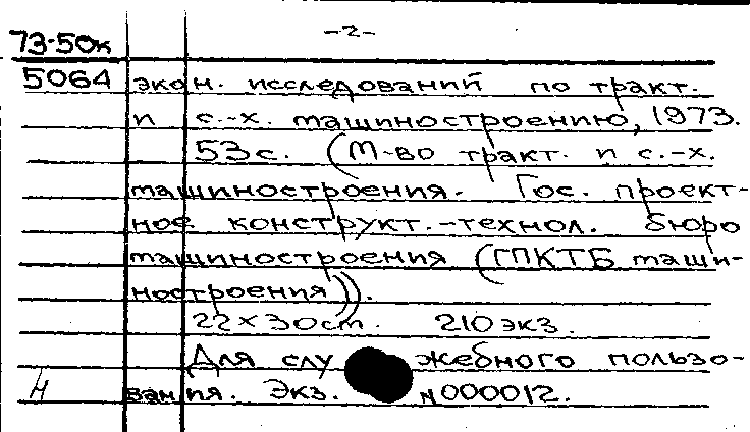 -2-
73-50к
5064 экон. исследований по тракт.
и с.-х. машиностроению, 1973.
53с. (М-во тракт. и с.-х.
машиностроения. Гос. проект-
ное конструкт.-технол. бюро
машиностроения (ГПКТБ маши-
ностроения)).
22×30см. 210 экз.
Для служебного пользо-
Н вания. Экз. №000012.